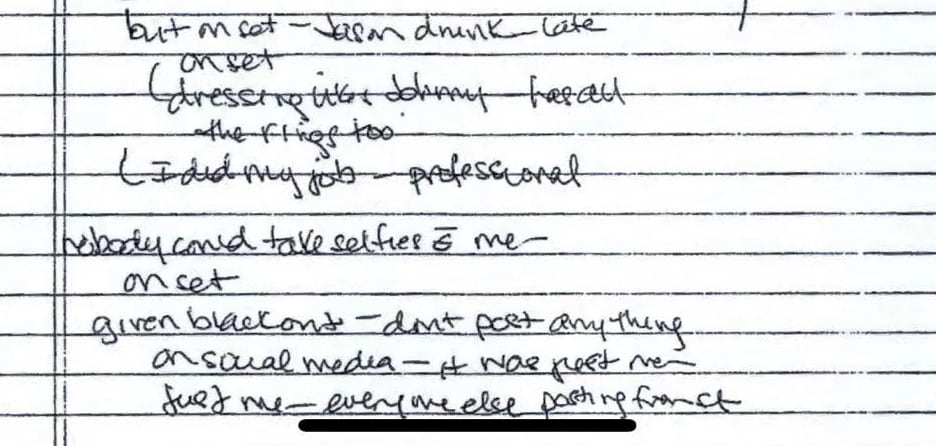 but on set – Jason drunk – late
on set
(dressing like Johnny – has all
the rings too
(I did my job – professional
nobody could take selfies c̄ me –
on set
given blackout – dont post anything
on social media – it was just me –
just me – everyone else posting from set